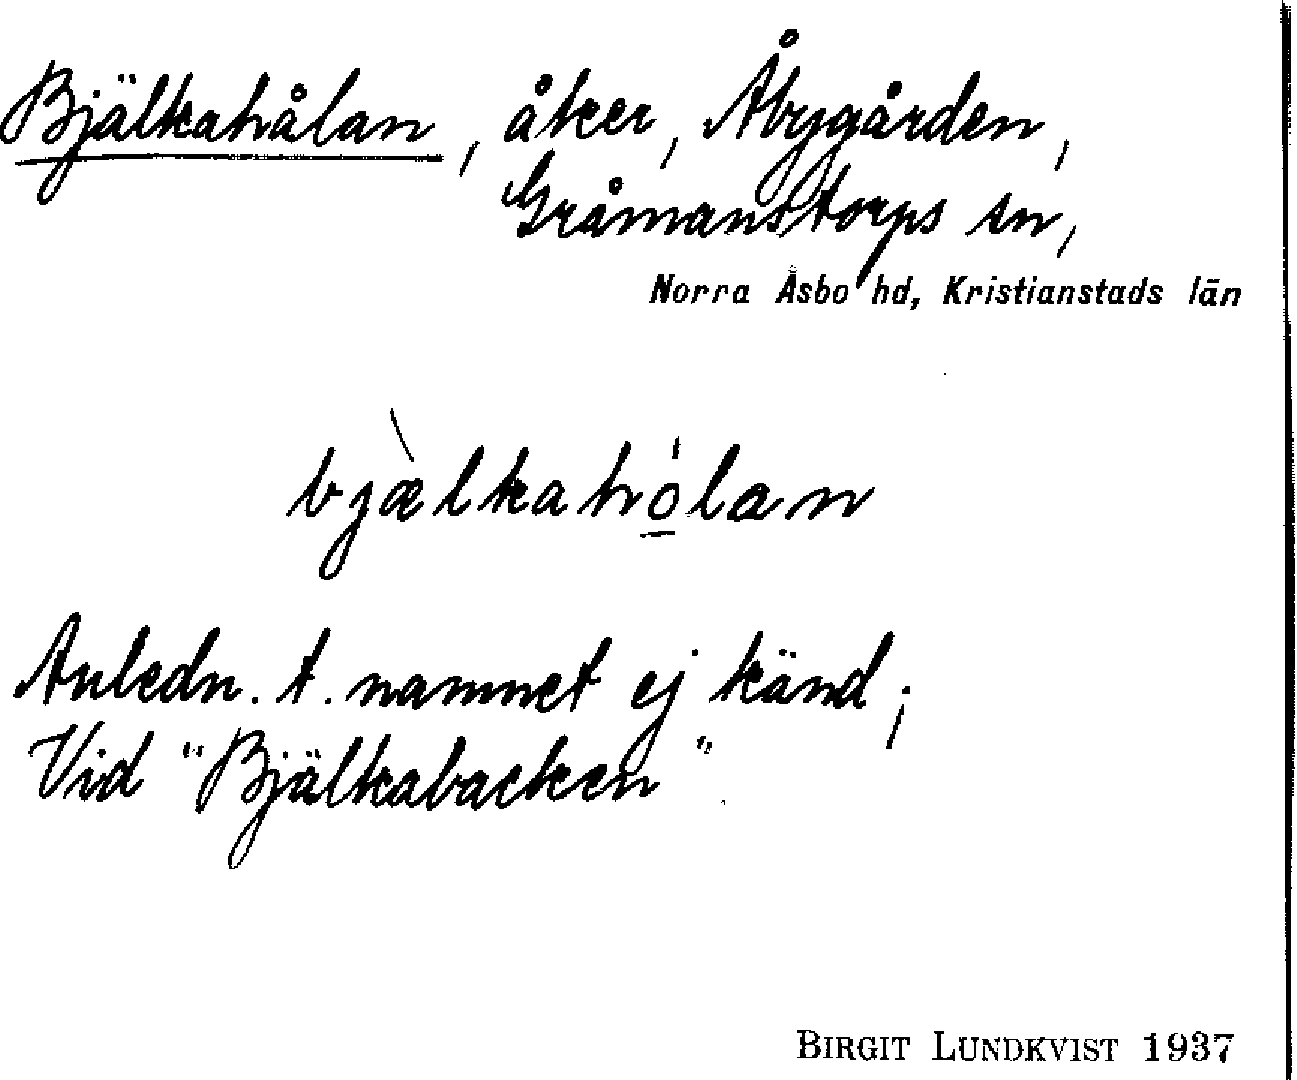 Bjälkahålan, åker, Åbygården,
Gråmanstorps sn,
Norra Åsbo hd, Kristianstads län
bjæ̀lkahó̲lan
Anledn. t. namnet ej känd;
Vid "Bjälkabacken".
BIRGIT LUNDKVIST 1937